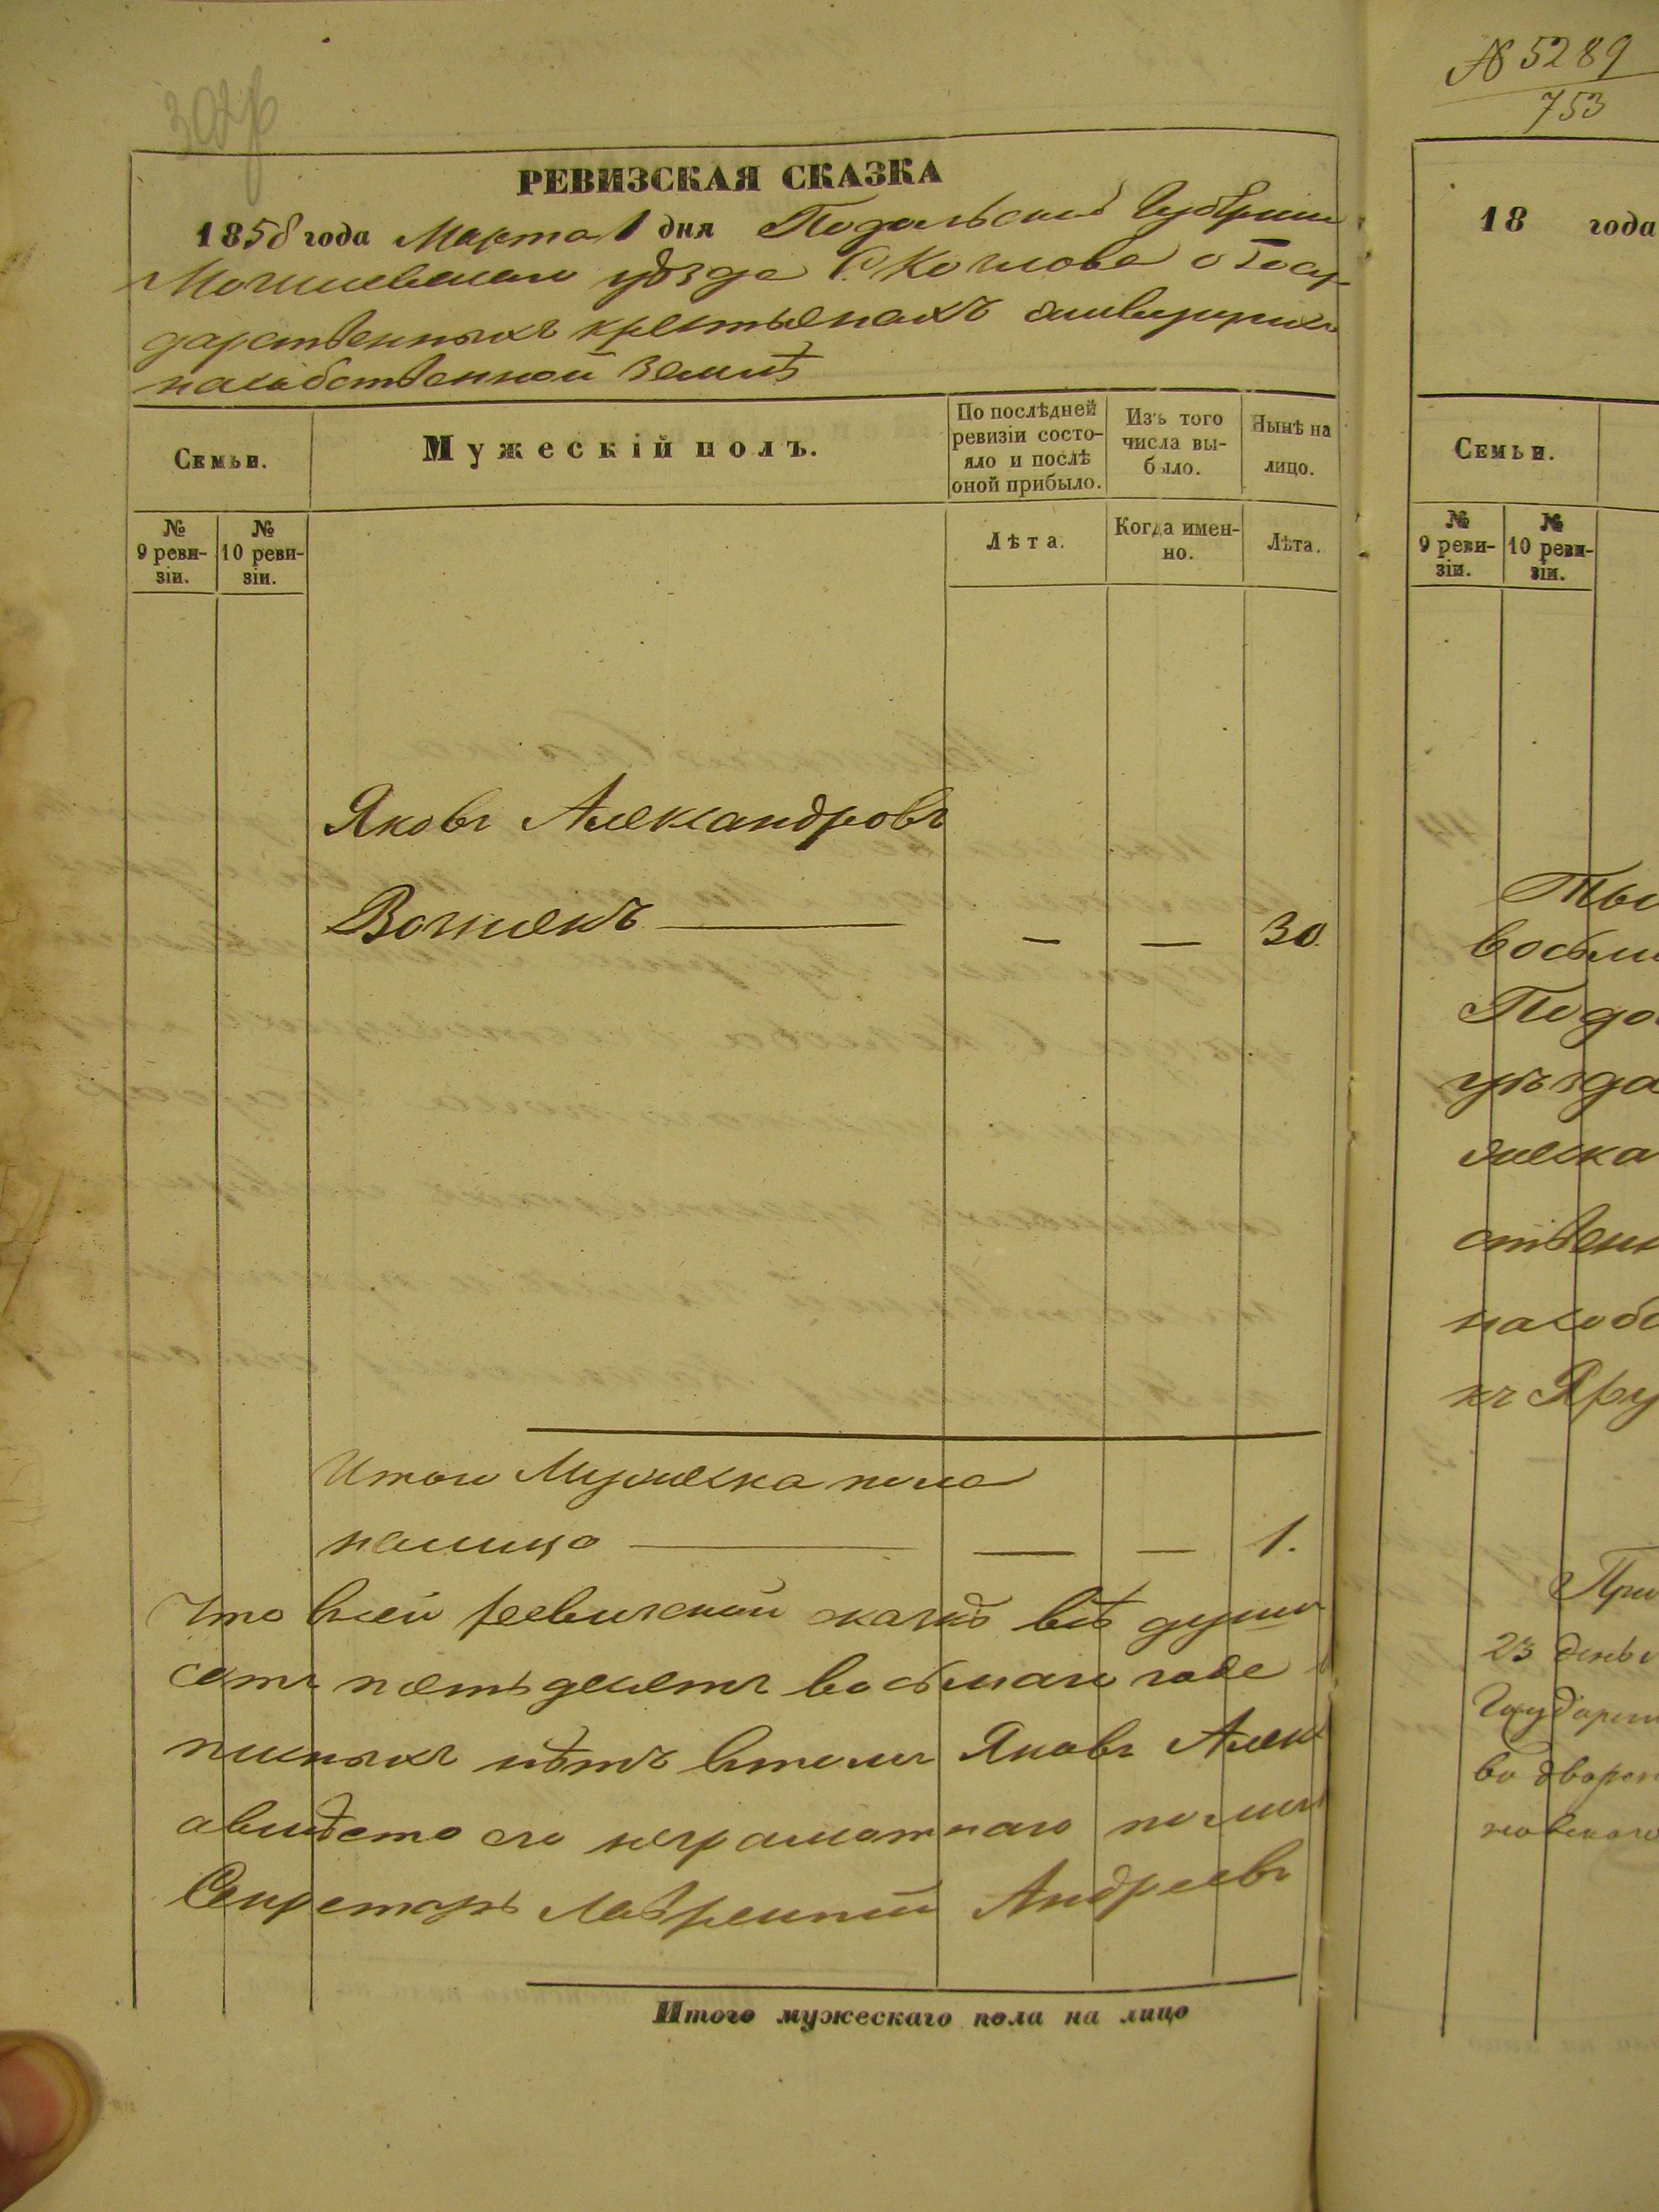 302
РЕВИЗСКАЯ СКАЗКА
1858 года Марта 1 дня Подольской Губернии
Могилевскаго уѣзда С. Козлова о Госу-
дарственныхъ крестьянахъ живущихъ
на собственной землѣ
Семьи.
Мужескій полъ.
По послѣдней ревизіи состо-
яло и послѣ оной прибыло.
Изъ того числа вы-
было.
Нынѣ на лицо.
№ 9 реви-
зіи.
№ 10 реви-
зіи.
Лѣта.
Когда имен-
но.
Лѣта.
Яковъ Александровъ
— — 30
Итого Мужеска пола
налицо — — 1.
Что в сей ревизской сказкѣ всѣ души
сотъ пятьдесятъ восьмаго года
писныхъ нѣтъ втомъ Яковъ Алек
авмѣсто его неграмотнаго
Секретарь Лаврентій Андреевъ
Итого мужескаго пола на лицо
№ 5289
753
18 года
Семьи.
№ 9 реви-
зіи.
№ 10 реви-
зіи.
восьми
Подо
уѣзда
ствен
на собс
къ Яру
При
23 день
Государ
во дворян